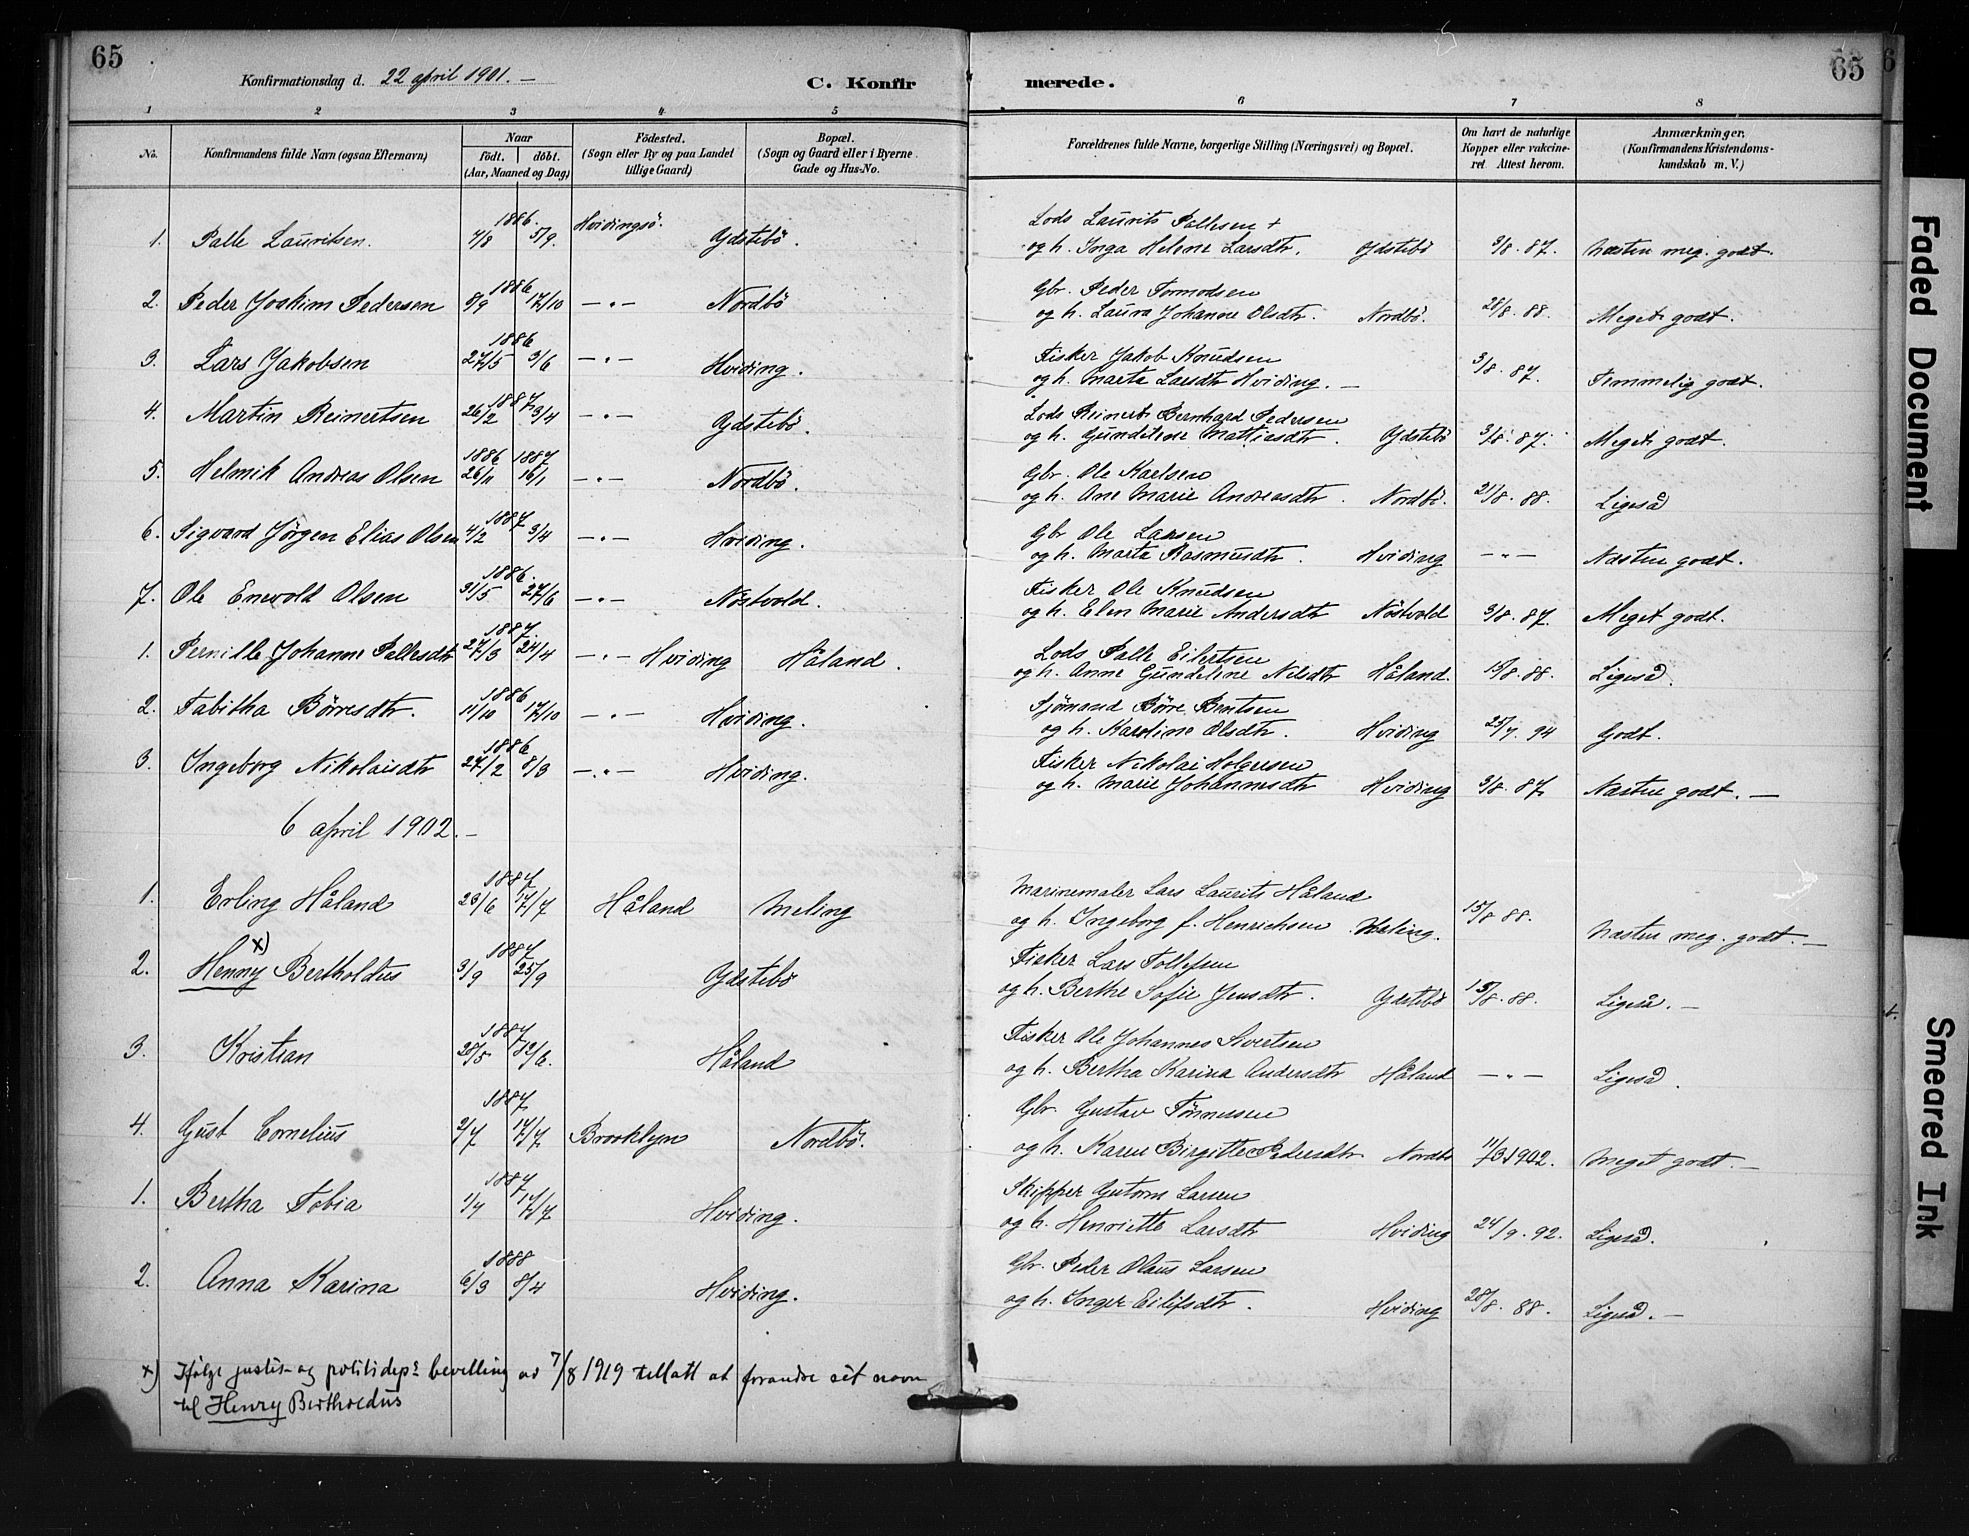 65
Konfirmationsdag d. 22 april 1901. —
C. Konfirmerede.
65
1 2 3 4 5 6 7 8
No.
Konfirmandens fulde Navn (ogsaa Efternavn)
Naar
födt. döbt.
(Aar, Maaned og Dag)
Födested.
(Sogn eller By og paa Landet
tillige Gaard)
Bopæl.
(Sogn og Gaard eller i Byerne
Gade og Hus-No.
Forældrenes fulde Navne, borgerlige Stilling (Næringsvei) og Bopæl.
Om havt de naturlige
Kopper eller vakcine-
ret Attest herom.
Anmærkninger,
(Konfirmandens Kristendoms-
kundskab m. V.)
1886. Hvidingsö. Lods Laurits Pallesen +
1. Palle Lauritsen. 4/8 5/9. Ydstebö. og h. Inga Helene Larsdtr. Ydstebö 3/8. 87. Næsten meg. godt.
1886 Gbr. Peder Tormodsen
2. Peder Joakim Pedersen 8/9 17/10 —"— Nordbö og h. Laura Johanne Olsdtr. Nordbö. 28/8. 88. Meget godt.
1886 Fisker Jakob Knudsen
3. Lars Jakobsen 27/5 3/6 —"— Hviding. og h. Marta Larsdtr Hviding. — 3/8. 87. Temmelig godt.
1887 Lods Reinert Bernhard Pedersen
4. Martin Reinertsen 26/2 3/4 —"— Ydstebö. og h. Gundeline Mattiasdtr. Ydstebö 3/8. 87. Meget godt.
1886 1887 Gbr. Ole Karlsen
5. Helmik Andreas Olsen 26/11 16/1 —"— Nordbö. og h. Ane Marie Andreasdtr. Nordbö. 21/8. 88. Ligeså
1887 Gbr Ole Larsen
6. Sigvard Jørgen Elias Olsen 4/2 3/4 —"— Hviding. og h. Marta Rasmusdtr. Hviding —"— Næsten godt.
1886. Fisker Ole Knudsen
7. Ole Enevold Olsen 31/5 27/6 —"— Nöstvold. og h. Elen Marie Andersdtr Nöstvold 3/8. 87. Meget godt.
1887 Lods Palle Eilertsen
1. Pernille Johanne Pallesdtr 27/3 24/4 —"— Hviding Håland. og h. Anne Gundeline Nilsdtr Håland. 15/8. 88. Ligeså.
1886 Sjömand Börre Bentsen
2. Tabitha Börresdtr. 11/10 17/10 —"— Hviding. og h. Karoline Olsdtr. Hviding 25/7. 94 Godt.
1886 Fisker Nikolai Holgersen
3. Ingeborg Nikolaisdtr 27/2 8/3 —"— Hviding. og h. Marie Johannesdtr Hviding 3/8. 87. Næsten godt. —
6 april 1902. —
1887 Marinemaler Lars Laurits Håland
1. Erling Håland 26/6 17/7 Håland Meling og h. Ingeborg f. Henrichsen Meling. 15/8 88. Næsten meg. godt. —
x) 1887 Fisker Lars Tollefsen
2. Henny Bertholdus 3/9 25/9 Ydstebö og h. Berthe Sofie Jensdtr. Ydstebö 15/8. 88. Ligeså. —
1887 Fisker Ole Johannes Sivertsen
3. Kristian 25/5 12/6. Håland og h. Bertha Karina Andersdtr Håland —"— Ligeså.
1887 Gbr. Gustav Tönnessen
4. Gust Cornelius 2/7 17/7 Brooklyn Nordbö. og h. Karen Birgitte Pedersdtr Nordbö 11/3 1902. Meget godt. —
1887 Skipper Gutorm Larsen
1. Bertha Tobia 1/7 17/7 Hviding. og h. Henriette Larsdtr Hviding 24/9. 92. Ligeså.
1888 Gbr. Peder Olaus Larsen
2. Anna Karina 6/3 8/4 Hviding. og h. Inger Eilifsdtr. Hviding 28/8. 88. Ligeså. —
x) Ifølge justis- og politidep: bevelling av 7/8 1919 tillatt at forandre sit navn
til Henry Bertholdus
Faded Document
Smeared Ink